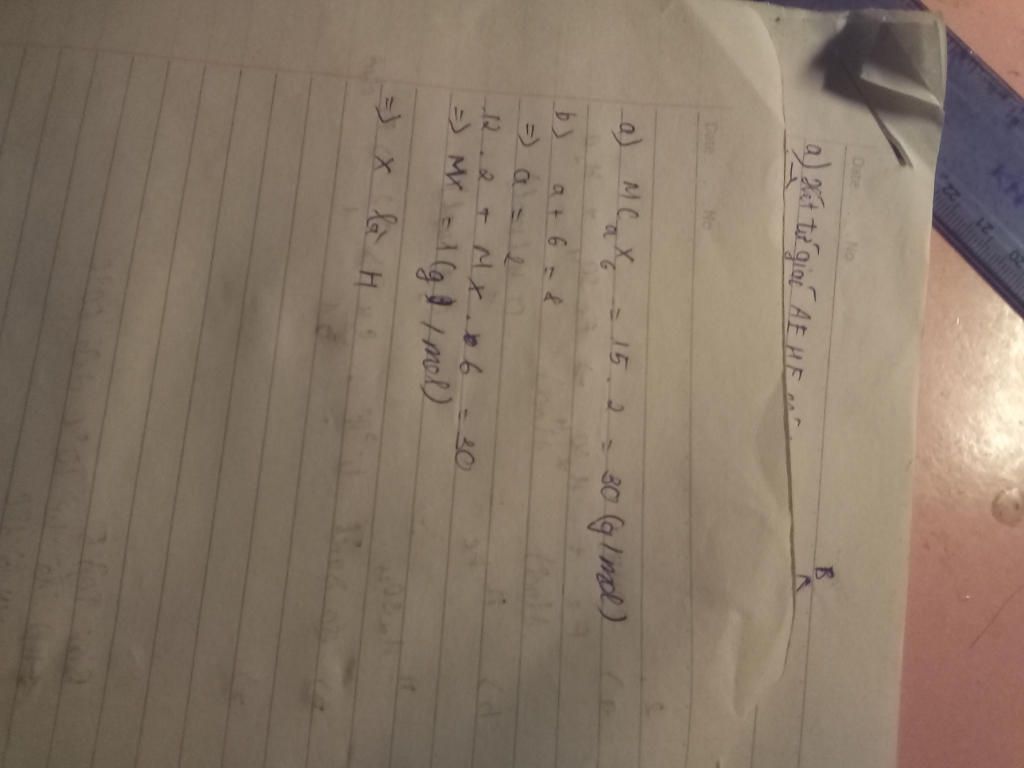 Date No
a) Xét tứ giác AEHF
B
Date No
a) MCaX6 = 15 . 2 = 30 (g/mol)
b) a + 6 = 8
=) a = 2
12 . 2 + MX . 6 = 30
=) MX = 1 (g/mol)
=) X là H
20
21
22